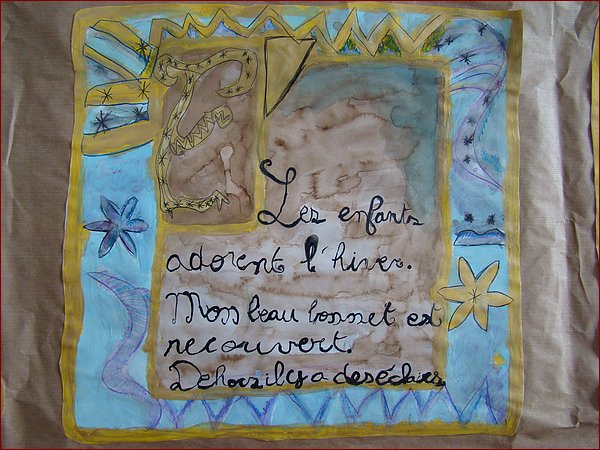 Les enfants
adorent l'hiver.
Mon beau bonnet est
recouvert.
Dehors il y a des éclairs